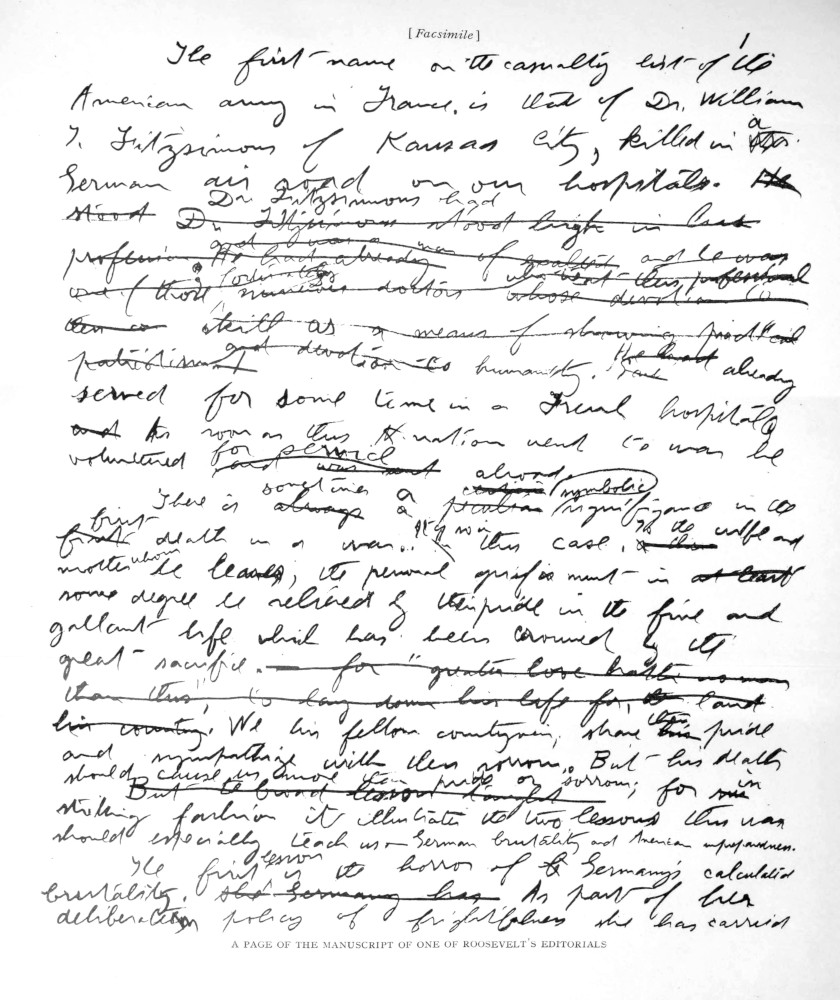 [Facsimile]
1
The first name on the casualty list of the
American army in France, is that of Dr. William
T. Fitzsimons of Kansas City, killed in a
German air raid on our hospitals. He
Dr. Fitzsimmons had
stood Dr. Fitzsimons stood high in his
and was a man
profession He had already of and he was
fortunately who went this professional
one of those numerous doctors whose devotion to
skill as a means of showing practical
patriotism and devotion to humanity. He had already
served for some time in a French hospital
and As soon as this nation went to war he
volunteered for service
and was sent abroad
There is sometimes always a peculiar symbolic significance in the
first
first death in a war. It is so in this case. To the wife and
mother whom he leaves, the personal grief must in at least
some degree be relieved by their pride in the fine and
gallant life which has been crowned by the
great sacrifice. for "greater love hath no man
than this, to lay down his life for, the land
his country. We his fellow countrymen, share their his pride
and sympathize with their sorrow. But his death
should cause us more than pride or sorrow; for in
But the broad lesson taught
striking fashion it illustrates the two lessons this war
should especially teach us – German brutality and American unpreparedness.
The first lesson is the horror of Germany's calculated
brutality. she Germany has As part of her
deliberate policy of frightfulness she has carried
A PAGE OF THE MANUSCRIPT OF ONE OF ROOSEVELT'S EDITORIALS